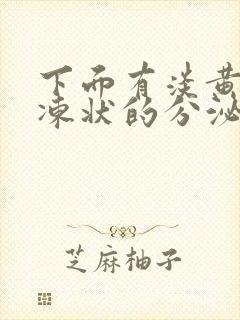 下面有淡黄
凍状的分泌
芝麻柚子